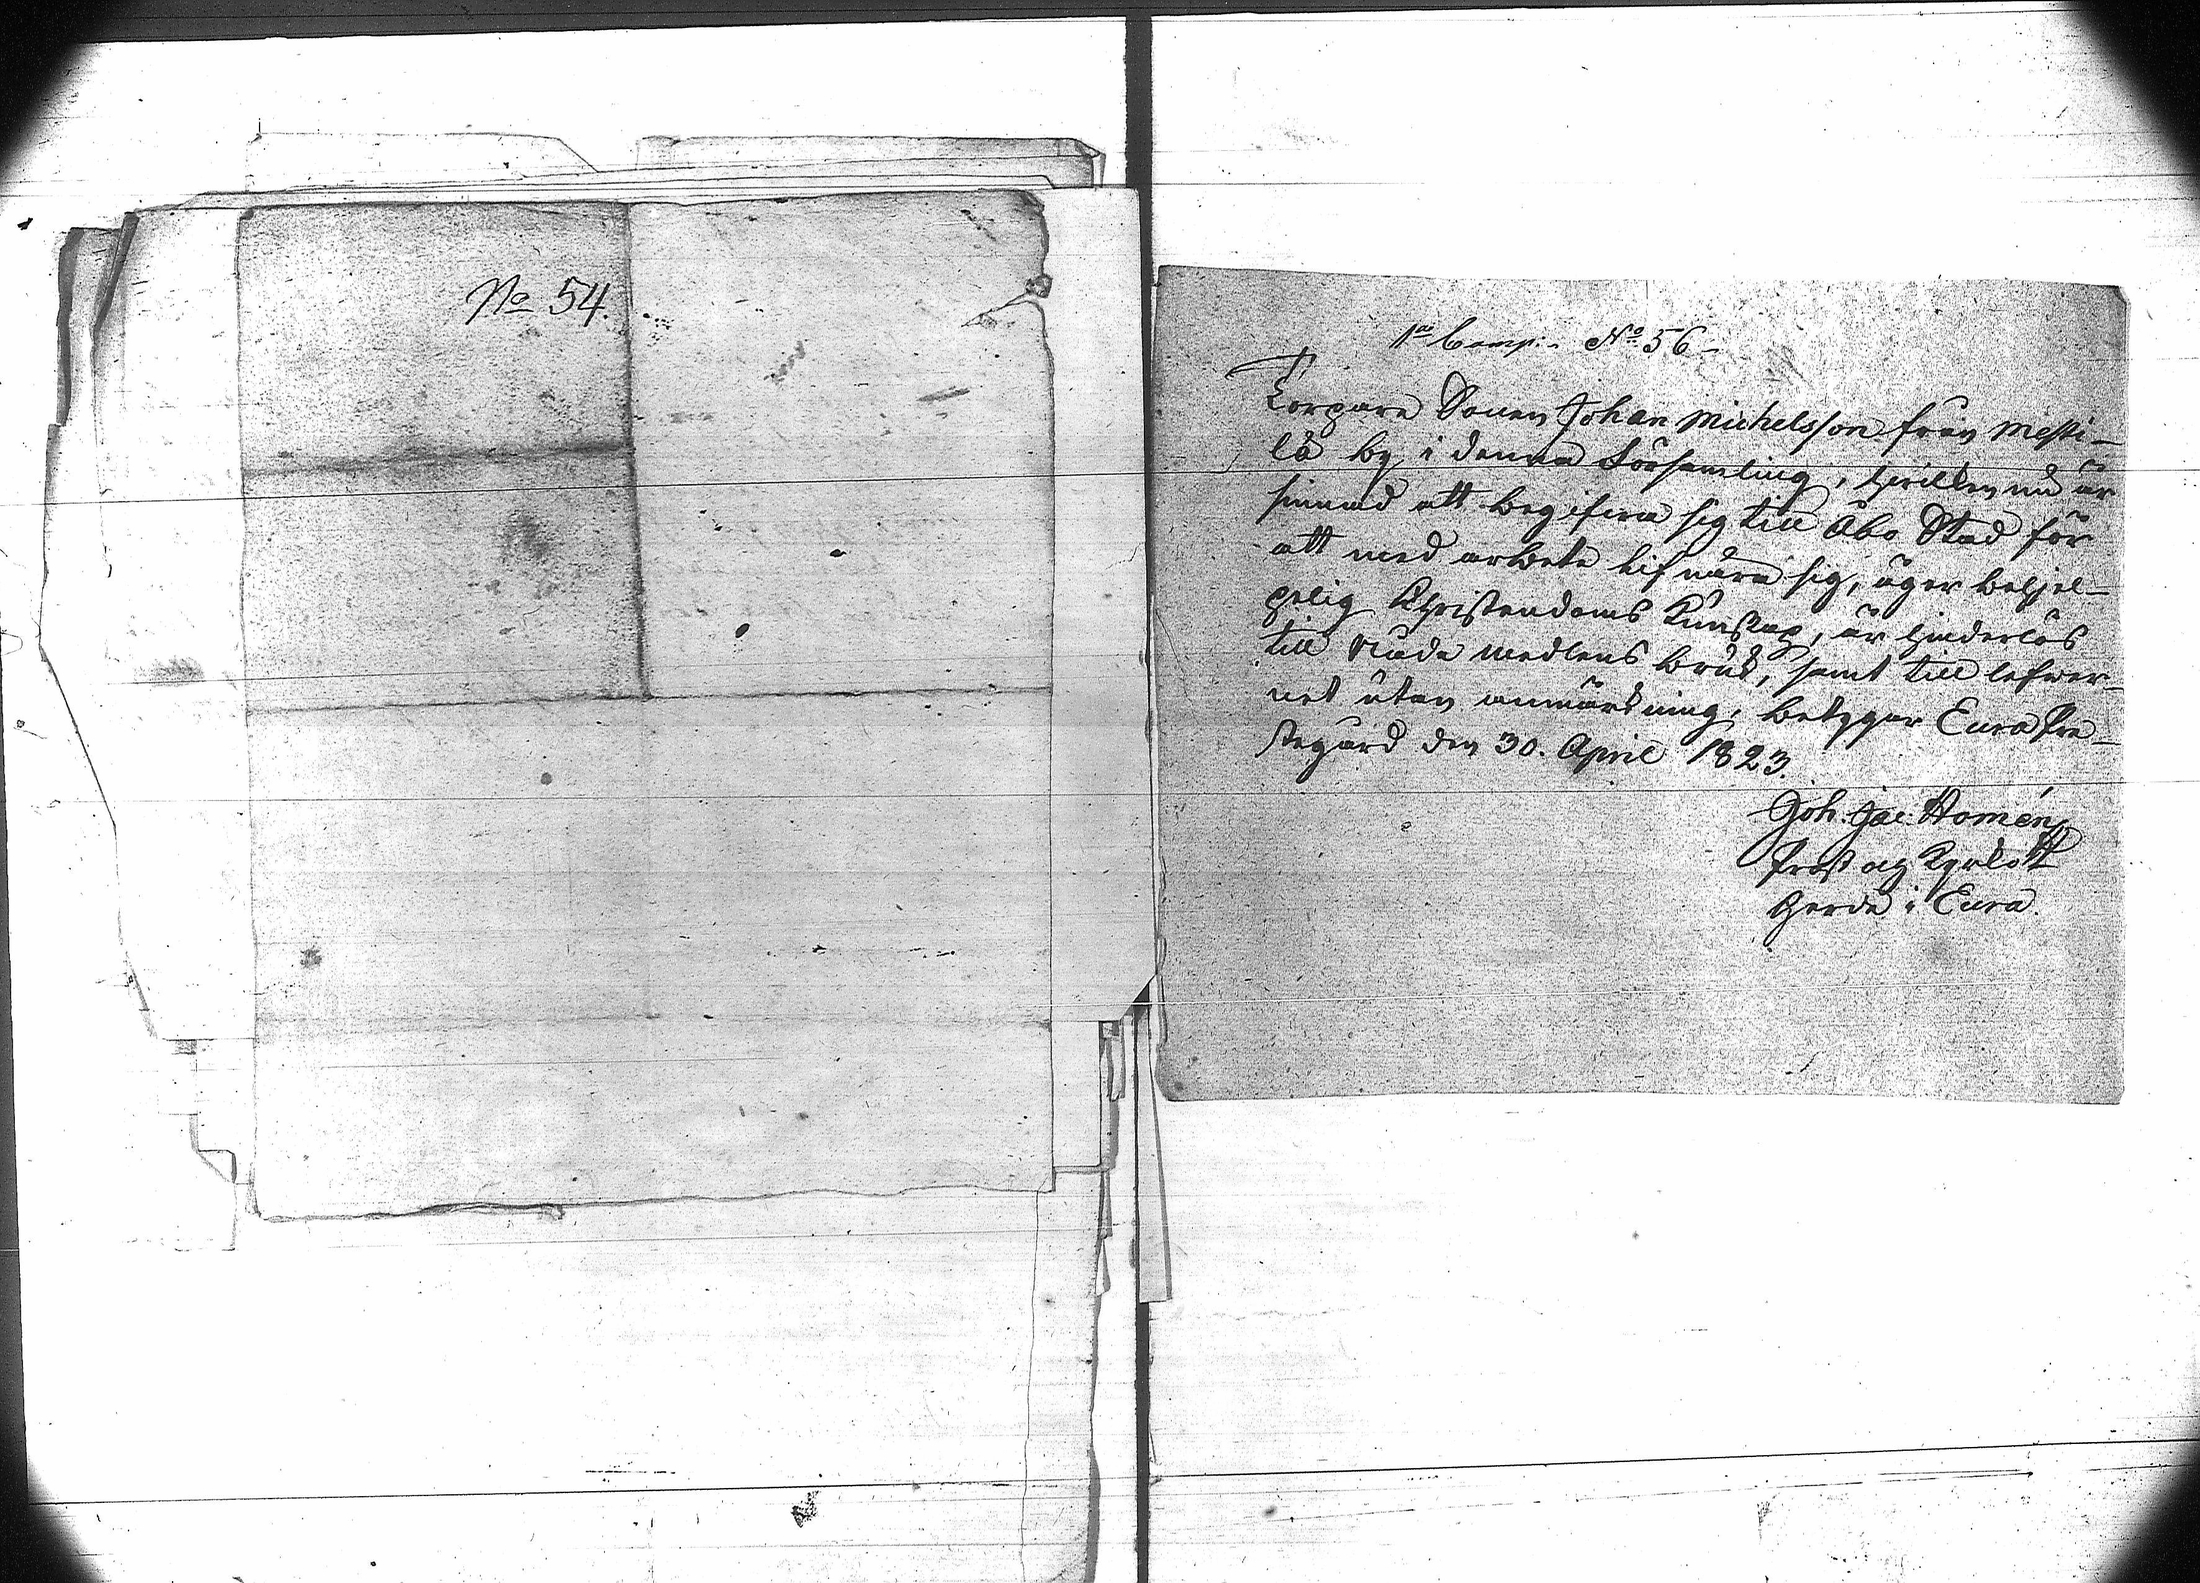 No 54.
1a Comp: No 56
Torpare Sonen Johan Michelsson från Mesti-
lä by i denna Församling, hvilken nu är
sinnad att begifva sig till Åbo Stad för
att med arbete lifnära sig, äger behjel-
pelig Christendoms kunskap, är hinderlös
till Nåde medlens bruk, samt till lefwer-
net utan anmärkning, betygar Eura Pre-
stegård den 30. April 1823.
Joh. Jac. Homén
Prost och Kyrko
Herde i Eura.